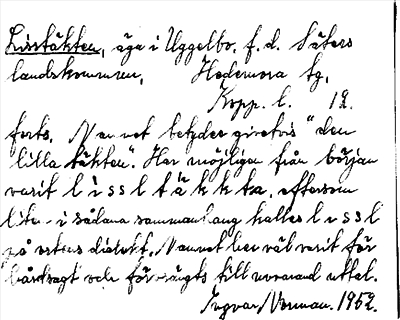 Lisstäkten, äga i Uggelbo, f.d. Säters
landskommun, Hedemora tg,
Kopp. l. 12.
forts. Namnet betyder givetvis "den
lilla täkten". Har möjligen från början
varit l i s s l t ä k k t a, eftersom
liten i sådana sammanhang kallas l i s s l
på ortens dialekt. Namnet har väl varit för
till nuvarand uttal.
Ingvar Norman. 1952.